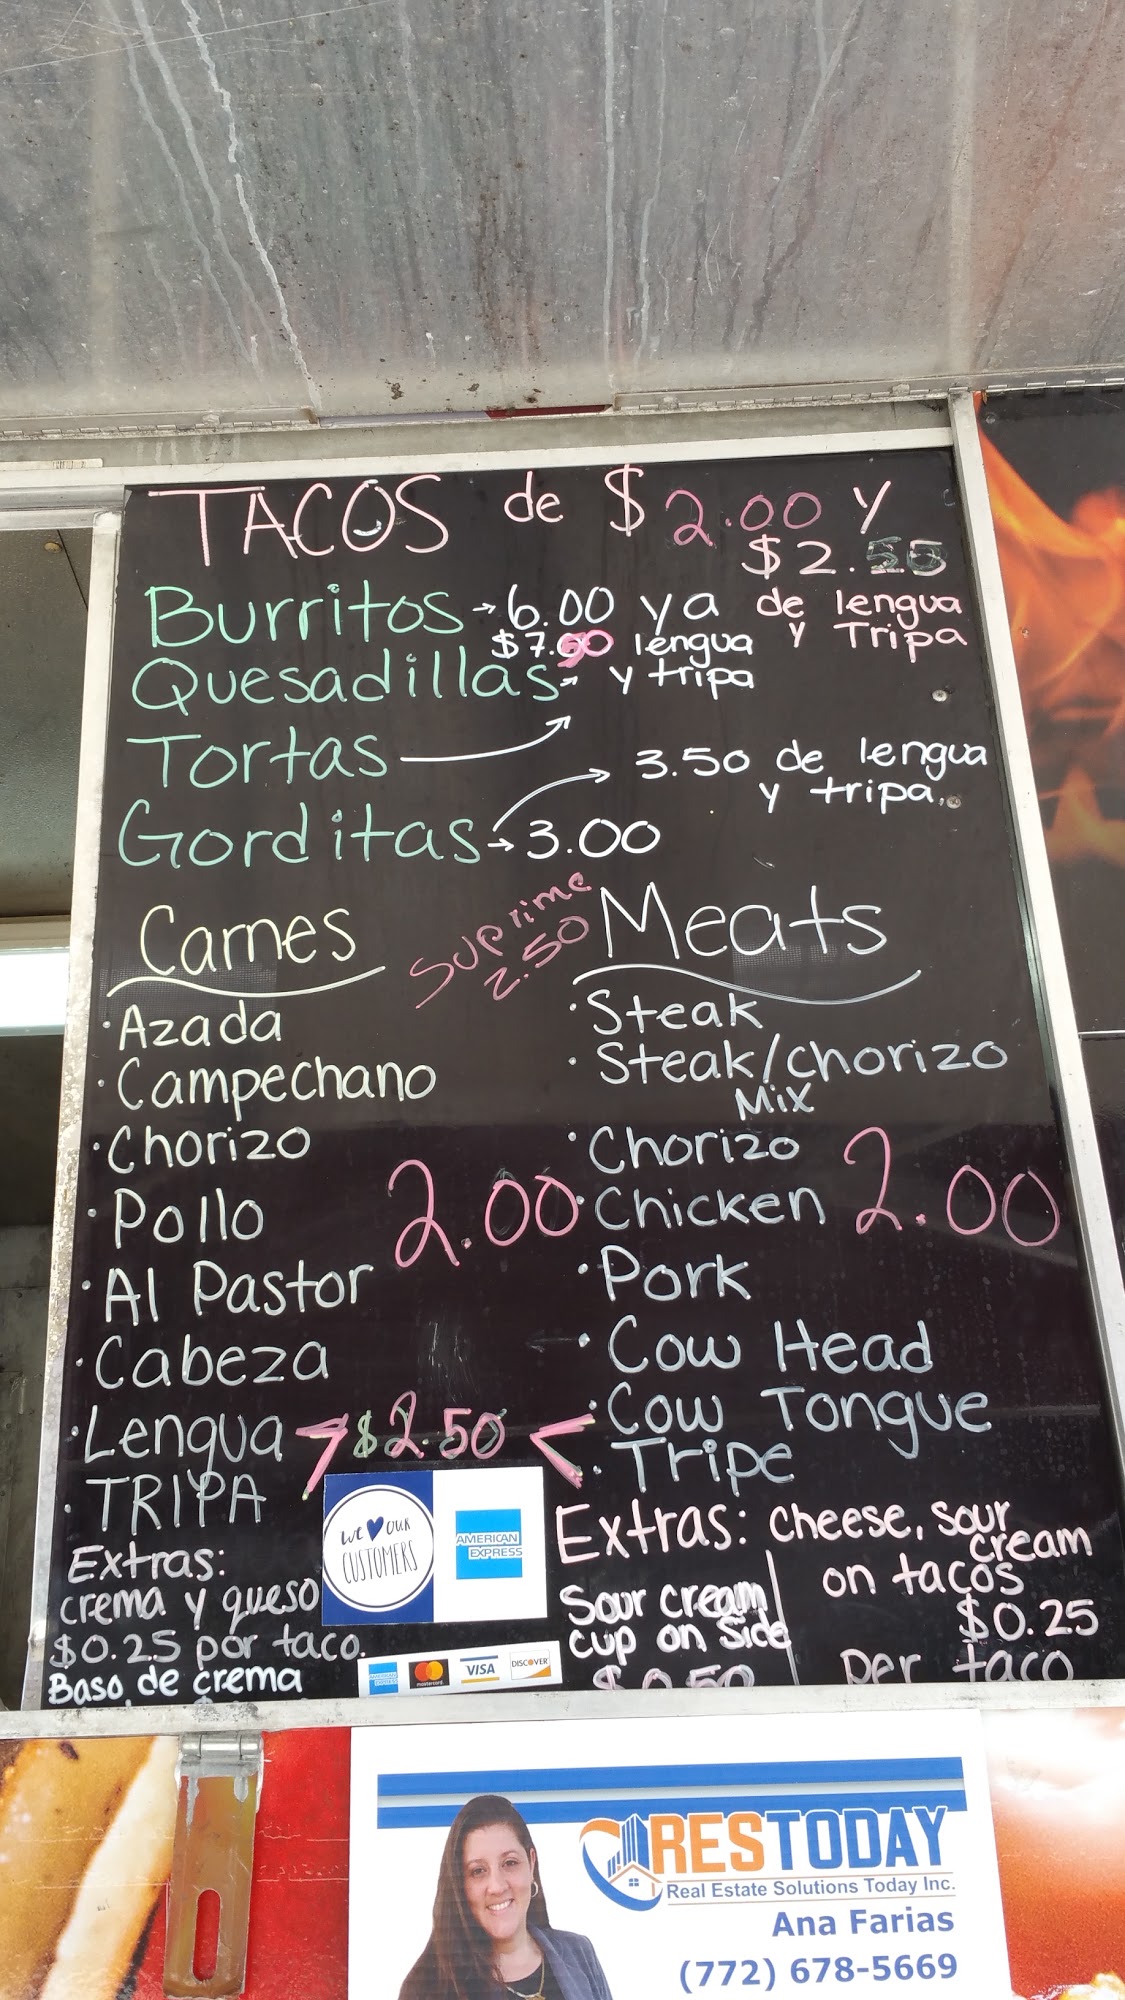 TACOS de $2.00 y
$2.50
de lengua
y Tripa
Burritos → 6.00 ya
$7.50 lengua
y tripa
Quesadillas →
Tortas →
3.50 de lengua
y tripa.
Gorditas → 3.00
suprime
2.50
Carnes
· Azada
· Campechano
· Chorizo
· Pollo
2.00
· Al Pastor
· Cabeza
· Lengua
· TRIPA
$2.50
Extras:
crema y queso
$0.25 por taco.
Baso de crema
Meats
· Steak
· Steak/chorizo
Mix
· Chorizo
· Chicken
2.00
· Pork
· Cow Head
· Cow Tongue
· Tripe
Extras: cheese, sour
cream
on tacos
$0.25
per taco
Sour cream
cup on side
$0.50
WE ♥ OUR
CUSTOMERS
AMERICAN
EXPRESS
AMERICAN
EXPRESS
mastercard
VISA
DISCOVER
RESTODAY
Real Estate Solutions Today Inc.
Ana Farias
(772) 678-5669